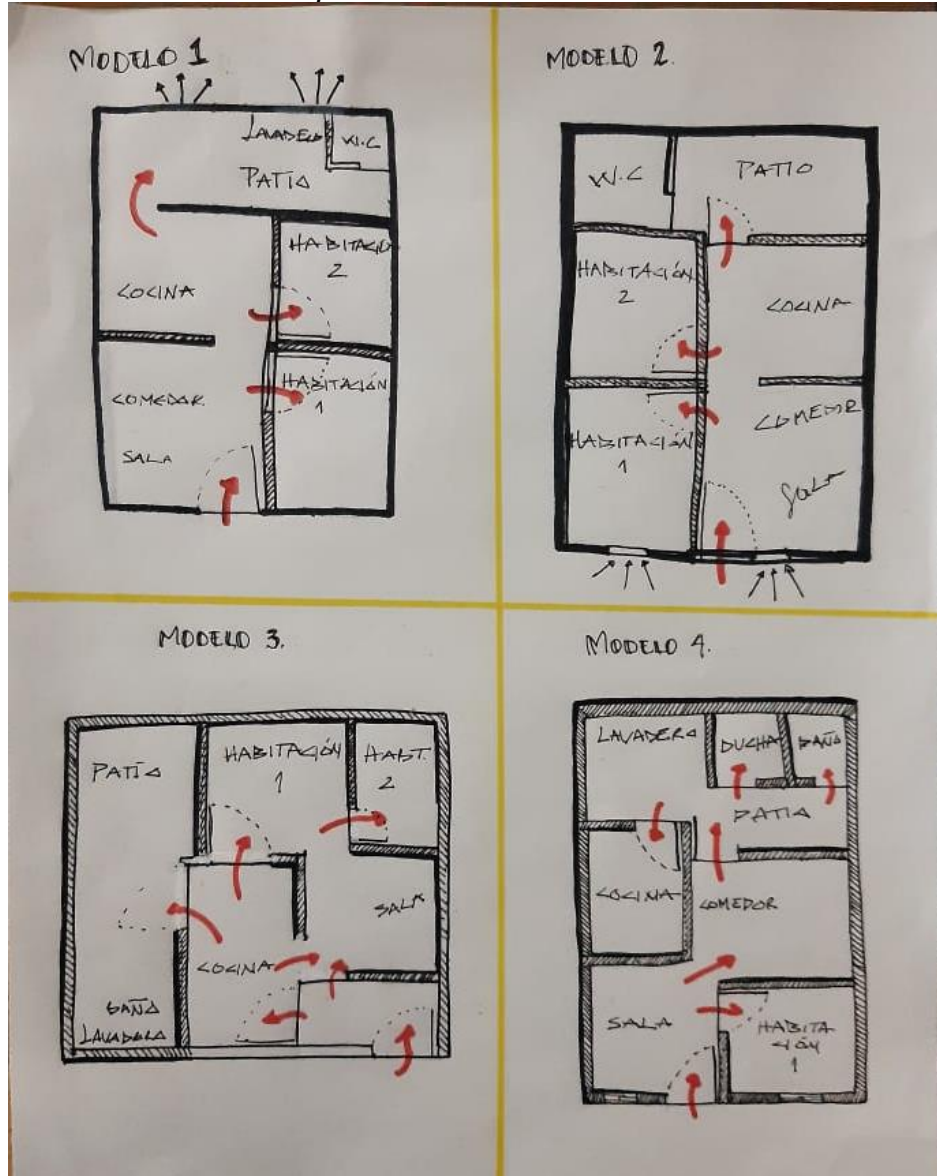 MODELO 1
LAVADERO W.C
PATIO
HABITACIÓN
2
COCINA
HABITACIÓN
1
COMEDOR.
SALA
MODELO 2.
W.C PATIO
HABITACIÓN
2
COCINA
COMEDOR
HABITACIÓN
1
SALA
MODELO 3.
PATIO
HABITACIÓN
1
HABT.
2
SALA
COCINA
BAÑO
LAVADERO
MODELO 4.
LAVADERO
DUCHA BAÑO
PATIO
COCINA
COMEDOR
SALA
HABITA
CIÓN
1